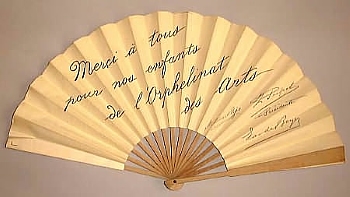 Merci à tous
pour nos enfants
de l'Orphelinat
des Arts